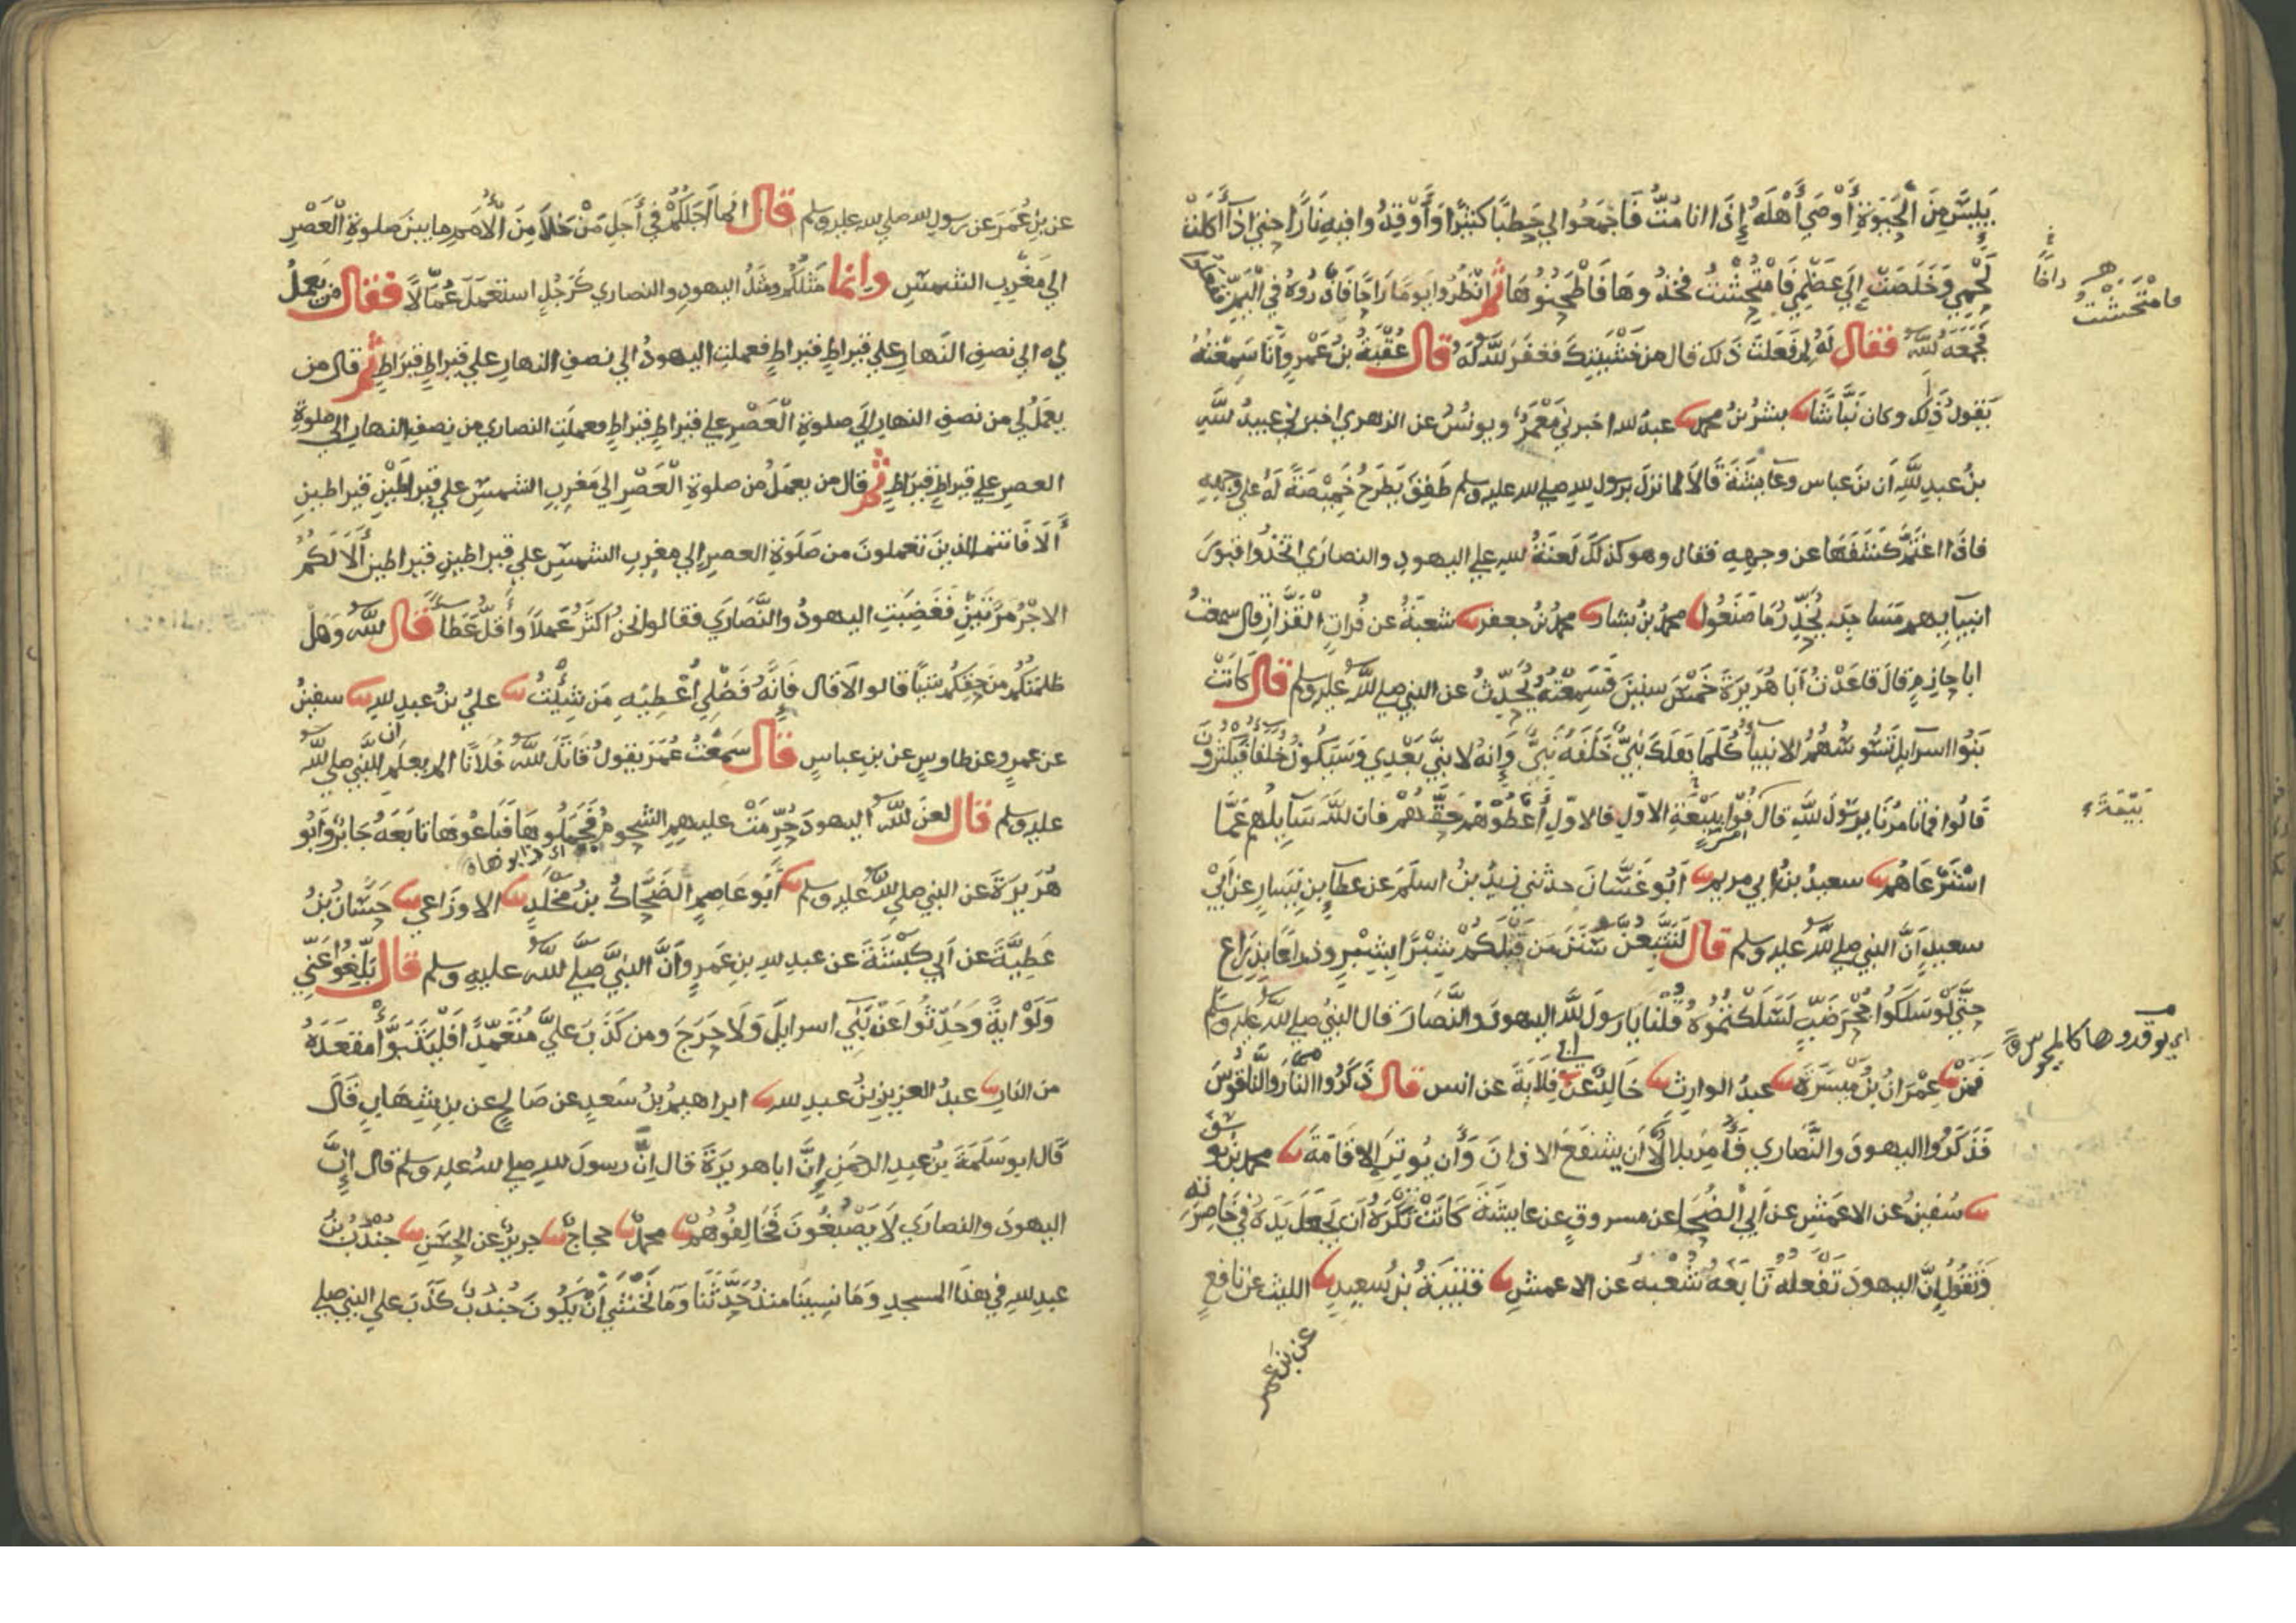 يَيِسَ مِنَ الْحَيَوةِ أَوْصَي أَهْلَهُ إِذَا انا مُتُّ فَاجْمَعُوا لي حَطبًا كثيرًا وَأَوْقِدُوا فيهِ نَارًا حتي اذا أكلتْ
لَحْمِي وَخَلَصَتْ إِلَي عَظْمِي فَامْتُحِشْتُ فخُذُوهَا فَاطْحَنُوهَا ثم انْظُرُوا يَومًا رَاحًا فَاذْرُوهُ في الْيَمِّ ففعلوا
فجَمَعَهُ اللّه فقال لَهُ لِمَ فَعَلتَ ذَلك قال من خَشْيَتِكَ فغفرَ اللّه لَهُ قال عُقْبَةُ بنُ عَمْرٍو وَأَنَا سَمِعْتُهُ
يَقولُ ذَلِكَ وكان نَبَّاشًا بشرُ بنُ محمد عبدُ الله اخبرني مَعْمَرٌ ويونُسُ عن الزهري اخبرني عبيدُ اللَّهِ
بنُ عبدِ اللَّهِ أن بنَ عباس وعَايِشَةَ قَالاَ لما نزلَ برسول للهِ صلي لله عليه وسلم طَفِقَ يَطرَحُ خَمِيْصَةً لَهُ علي وجههِ
فاذَا اغتَمَّ كشَفَهَا عن وجهِهِ فقال وهو كذلكَ لَعنَةُ للهِ علي اليهودِ والنصارَي اتخذُوا قبورَ
انبيآيِهم مَسَاجِدَ يُحَذِّرُ مَا صَنَعُوا محمدُ بنُ بشار محمدُ بنُ جعفر شعبَةُ عن فُراتٍ الْقَزَّازِ قال سمعتُ
ابا حَازِمٍ قالَ قاعَدْتُ أَبَا هُرَيرَةَ خَمْسَ سِنينَ فَسَمِعْتُهُ يُحَدِّثُ عن النبي صلي اللّه عليه وسلم قال كانَتْ
بَنُوا اسرآيِلَ تَسُوسُهُمُ الانبيآُ كُلَّمَا هَلَكَ نبيٌّ خَلَفَهُ نَبِيٌّ وَإِنهُ لا نبيَّ بَعْدِي وَسَيَكُونُ خُلَفَآُ فَيكْثُرُونَ
قَالُوا فمَا تَامُرُنَا يرسُولَ للَّهِ قالَ فُوا بِبَيْعَةِ الاَوّلِ فالاَوّلِ أَعْطُوْهُمْ حَقَّهُمْ فان للَّهَ سَآيِلُهم عَمَّا
اسْتَرْعَاهُم سعيدُ بنُ ابي مريم أَبُو غسَّانَ حدثني زيدُ بنُ اسلمَ عن عطآءِ بنِ يَسَارٍ عن ابي
سعيدٍ أَنَّ النبي صلي للّه عليه وسلم قال لَتَتَّبِعُنَّ سَنَنَ مَن قَبْلَكُمْ شِبْرًا بِشِبْرٍ وذراعًا بِذِرَاعٍ
حَتَّي لَوْ سَلَكُوا جُحْرَ ضَبٍّ لَسَلَكْتُمُوهُ قُلْنَا يَا رسُولَ للَّه اليهودَ والنَّصَارَ قال النبيُ صلي للّه عليه وسلم
فمَنْ عِمْرَانُ بنُ مَيْسَرَةَ عبدُ الوارِثِ خَالِدٌ عَنْ ابي قِلاَبَةَ عن انس قال ذَكَرُوا النَّارَ والنَّاقُوسَ
فَذَكَرُوا اليهودَ والنَّصَارَي فَأُمِرَ بِلالٌ أَن يشْفَعَ الاذانَ وَأَن يُوتِرَ الإِقَامَةَ محمدُ بنُ يوسف
سُفينُ عن الاعمَشِ عن أَبي الضُّحَا عن مسروقٍ عن عَايِشَةَ كَانَتْ تَكْرَهُ أَن يَجعَلَ يَدَهُ في خَاصِرَتِهِ
وَتَقُولُ إِنَّ اليهودَ تَفْعَلُهُ تَابَعَهُ شُعْبَهُ عن الاعمشِ قتيبَةُ بنُ سعيدٍ الليث عن نَافعٍ
عن بن عمر
فامْتُحِشْتُ
بَيْعَة
اي يوقدوها كالمجوس
عن بنِ عُمَرَ عن رسول لله صلي لله عليه وسلم قال انما أَجَلُكُمْ في أَجَلِ مَنْ خَلاَ مِنَ الْأُمَمِ ما بينَ صَلوةِ الْعَصْرِ
الي مَغْرِبِ الشمسِ وانما مَثلُكُم ومثَلُ اليهودِ والنصاري كَرَجُلٍ استعْمَلَ عُمَّالاً فقال من يعملُ
لي الي نصفِ النَهارِ علي قيراطٍ قيراطٍ فعملتِ اليهودُ الي نصفِ النهارِ علي قيراطٍ قيرَاطٍ ثم قال من
يعمَلُ لي من نصفِ النهارِ إلَي صلوةِ الْعَصْرِ علي قيراطٍ قيراطٍ فعملَتِ النصاري من نِصفِ النهارِ الي صلوةِ
العصرِ علي قيراطٍ قيرَاطٍ ثم قال من يعملُ من صلوةِ الْعَصْرِ الي مَغْرِبِ الشمسِ علي قيراطَيْنِ قيراطينِ
أَلَا فَانتم الذينَ تعملونَ من صَلَوةِ العصرِ الي مغرِبِ الشمسِ علي قيراطينِ قيراطين أَلَا لَكُمُ
الاجْرُ مَرّتَيْنِ فغَضِبَتِ اليهودُ والنَّصَارَي فقالوا نحنُ اكثَرُ عَمَلاً وأَقَلُّ عَطَاً قال اللّه وَهَلْ
ظلمتُكُم من حَقِّكُم شيئًا قالوا لاَ قال فَإِنَّهُ فَضْلِي أُعْطِيْهِ مَن شِئْتُ عليُ بنُ عبدِ للهِ سفينُ
عن عمرٍو عن طاوسٍ عن بنِ عباسٍ قال سَمِعْتُ عُمَرَ يقولُ قَاتَلَ للّه فُلاَنًا الم يعلَم أن النَّبي صلي للّه
عليه وسلم قال لعنَ للّه اليهودَ حُرِّمَتْ عليهِم الشحُومُ فَجَمَلُوهَا فَبَاعُوهَا تابَعَهُ جَابرٌ وَأبُو
اي ذابوهاه
هُرَيرَةَ عن النبي صلي اللّه عليه وسلم أَبُو عَاصِمٍ الضَّحَّاكُ بنُ مَخْلَدٍ الاوزَاعي حَسَّانُ بنُ
عَطِيَّةَ عن أبي كبْشَةَ عن عبدِ للهِ بنِ عَمرٍو أَنَّ النبيَّ صَلَّي للّه عليهِ وسلم قال بَلِّغُوا عَنِّي
وَلَوْ ايةً وَحَدِّثُوا عَنْ بَنِي اسرايِلَ وَلَا حَرَجَ ومن كَذَبَ عليَّ مُتَعَمِّدًا فَلْيَتَبَوَّأْ مَقعَدَهُ
من النارِ عبدُ العزيزِ بنُ عبدِ لله ابراهيمُ بنُ سَعيدٍ عن صَالحٍ عن بنِ شِهَابٍ قَالَ
قَالَ ابو سَلَمَةَ بنُ عبدِ الرحمَنِ إِنَّ ابا هريرَةَ قال إنَّ رسولَ للهِ صلي للهُ عليه وسلم قال إِنَّ
اليهودَ والنصارَي لَا يَصْبُغُونَ فَخَالِفُوْهُمْ محمدٌ حجاجٌ جريرٌ عن الحَسَنِ جُنْدُبُ بنُ
عبدِ للهِ في هذَا المسجدِ وَمَا نسِينَا منذُ حَدَّثَنَا وَمَا نَخْشَي أَنْ يَكُونَ جُنْدُبٌ كذَبَ علي النبي صلي